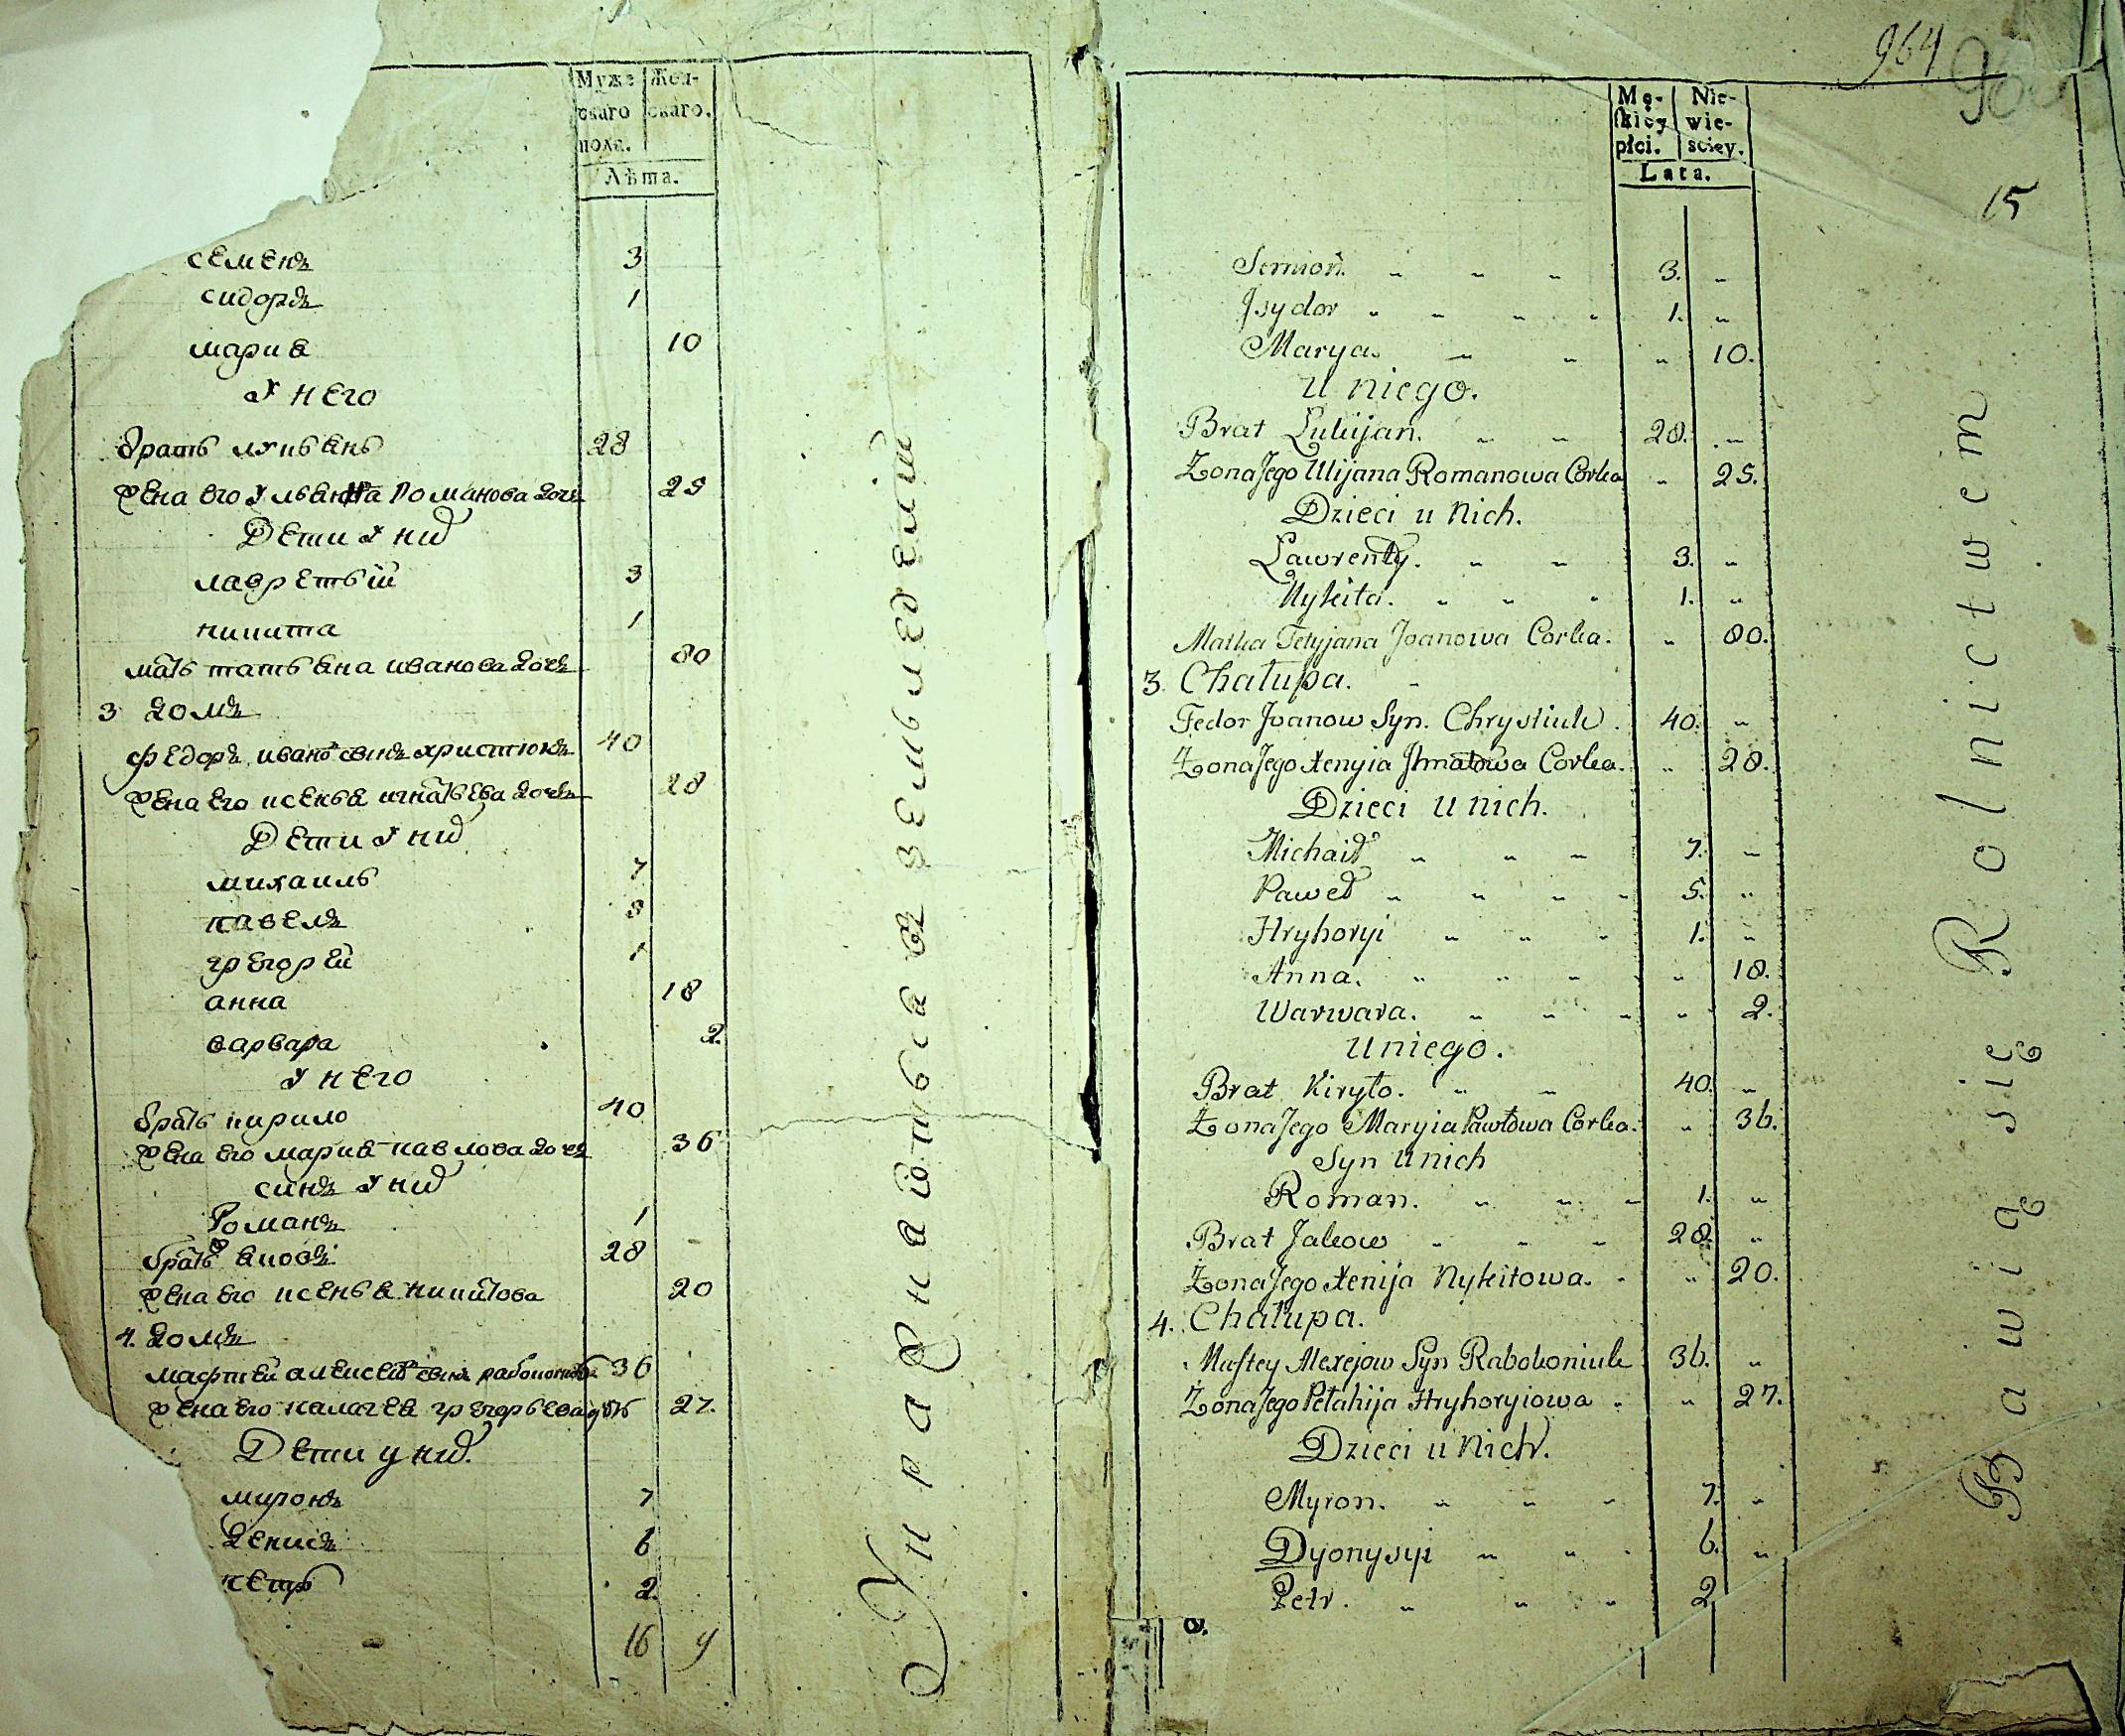 Муже
скаго
пола.
Жен-
скаго.
Лѣта.
семенъ 3
сидоръ 1
мария 10
У него
братъ лукьянъ 28
жена его ульянна романова дочь 25
Дети у них
лаврентьий 3
никита 1
мать татьяна иванова дочь 80
3 домъ
федоръ ивановъ синъ христюкъ 40
жена его ксенья игнатьева дочь 28
Дети у них
михаиль 7
павелъ 5
грегорей 1
анна 18
варвара 2.
У него
братъ кирило 40
жена его мария павлова дочь 36
синъ у них
Романъ 1
братъ яковъ 28
жена его ксенья никитова 20
4. домъ
мафтей алексеевъ синъ рабоконюкъ 36
жена его палагея грегорьева дочь 27.
Дети у них.
миронъ 7
денисъ 6
петръ 2.
16 9
Упражняються въ земледелии
964
15
Mę-
skiey
płci.
Nie-
wie-
sciey.
Lata.
Semion. „ „ „ 3. „
Jsydor „ „ „ „ 1. „
Marya. „ „ „ 10.
U niego.
Brat Lukijan. „ „ 28. „
Żona Jego Ulijana Romanowa Corka „ 25.
Dzieci u Nich.
Lawrenty. „ „ 3. „
Nykita. „ „ „ 1. „
Matka Tetyjana Joanowa Corka. „ 80.
3. Chałupa.
Fedor Joanow Syn. Chrystiuk. 40. „
Żona Jego Xenyia Jhnatowa Corka. „ 28.
Dzieci U nich.
Michaił „ „ „ 7. „
Paweł „ „ „ „ 5. „
Hryhoryi „ „ „ 1. „
Anna. „ „ „ „ „ 18.
Warwara. „ „ „ „ 2.
U niego.
Brat Kiryło. „ „ 40. „
Żona Jego Maryia Pawłowa Corka. „ 36.
Syn U nich
Roman. „ „ „ 1. „
Brat Jakow „ „ „ 28. „
Żona Jego Xenija Nykitowa. „ „ 20.
4. Chałupa.
Maftey Alexejow Syn Rabokoniuk 36. „
Żona Jego Pełahija Hryhoryiowa „ „ 27.
Dzieci u Nich.
Myron. „ „ „ 7. „
Dyonysyi „ „ „ 6. „
Petr. „ „ „ 2
Bawią się Rolnictwem